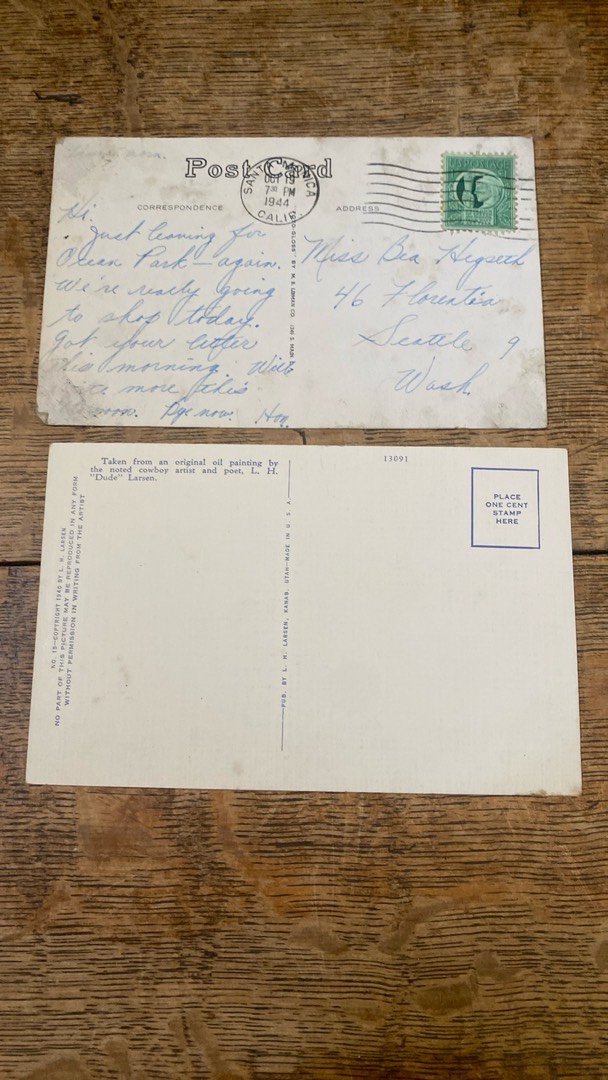 Post Card
SANTA MONICA
OCT 19
7 30 PM
1944
CALIF.
U.S. POSTAGE
CORRESPONDENCE
ADDRESS
Hi.
Just leaving for
Ocean Park – again.
We're really going
to shop today.
Got your letter
this morning. Will
more this
Bye now. Hon.
Miss Bea Hegseth
46 Florentia
Seattle 9
Wash.
Taken from an original oil painting by
the noted cowboy artist and poet, L. H.
"Dude" Larsen.
13091
PLACE
ONE CENT
STAMP
HERE
COPYRIGHT 1940 BY L. H. LARSEN
NO PART OF THIS PICTURE MAY BE REPRODUCED IN ANY FORM
WITHOUT PERMISSION IN WRITING FROM THE ARTIST
PUB. BY L. H. LARSEN, KANAB, UTAH—MADE IN U. S. A.